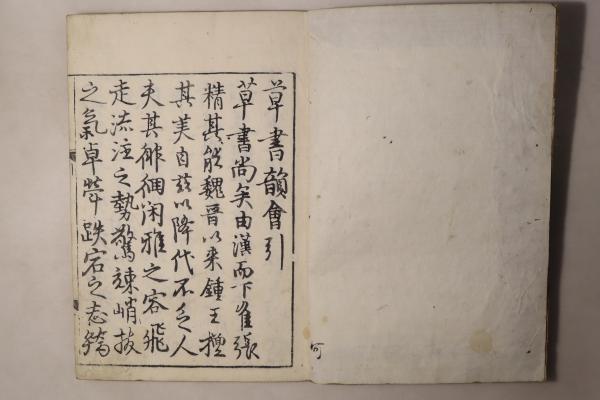 草書韻會引
草書尚矣由漢而下崔張
精其能魏晉以來鍾王擅
其美自茲以降代不乏人
夫其徘徊閑雅之容飛
走流注之勢驚竦峭拔
之氣卓犖跌宕之志矯
可